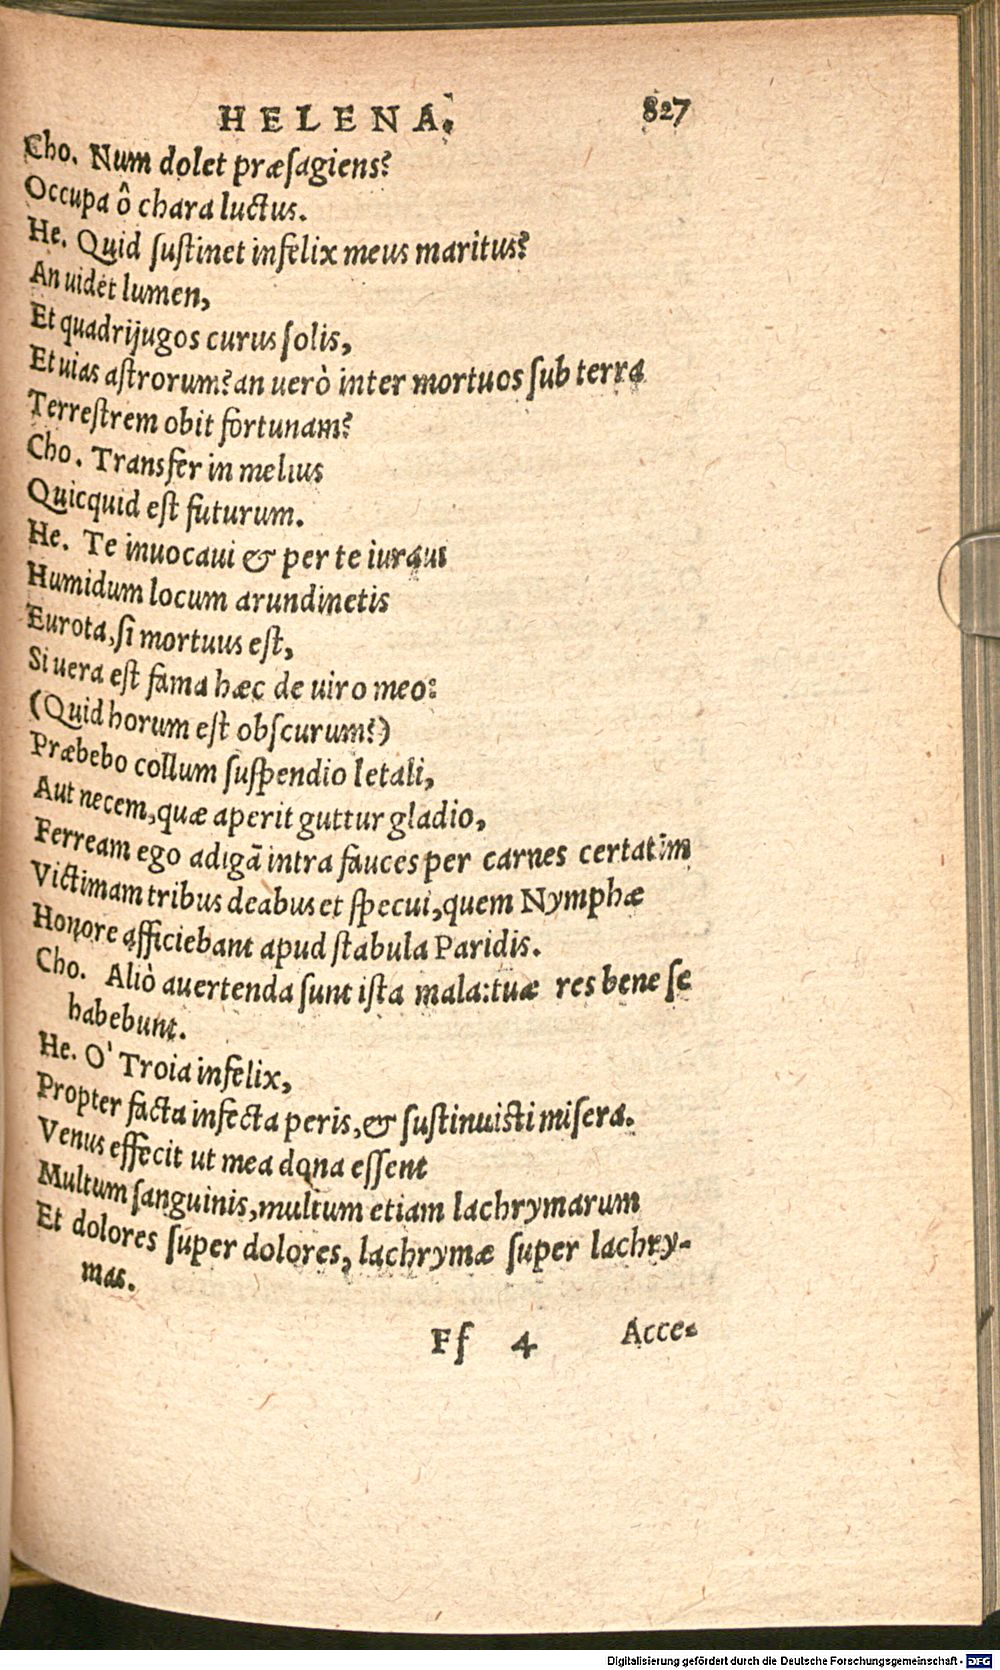 HELENA. 827
Cho. Num dolet præsagiens?
Occupa ô chara luctus.
He. Quid sustinet infelix meus maritus?
An uidet lumen,
Et quadrijugos curus solis,
Et uias astrorum? an uerò inter mortuos sub terra
Terrestrem obit fortunam?
Cho. Transfer in melius
Quicquid est futurum.
He. Te inuocaui & per te iuraui
Humidum locum arundinetis
Eurota, si mortuus est,
Si uera est fama hæc de uiro meo:
(Quid horum est obscurum?)
Præbebo collum suspendio letali,
Aut necem, quæ aperit guttur gladio,
Ferream ego adigā intra fauces per carnes certatim
Victimam tribus deabus et specui, quem Nymphæ
Honore afficiebant apud stabula Paridis.
Cho. Aliò auertenda sunt ista mala: tuæ res bene se
habebunt.
He. O' Troia infelix,
Propter facta infecta peris, & sustinuisti misera.
Venus effecit ut mea dona essent
Multum sanguinis, multum etiam lachrymarum
Et dolores super dolores, lachrymæ super lachry-
mas.
Ff 4 Acce-
Digitalisierung gefördert durch die Deutsche Forschungsgemeinschaft - DFG